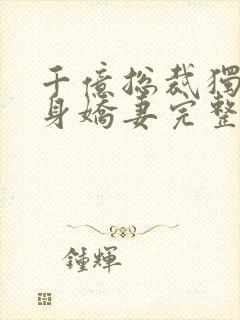 千億總裁獨
身嬌妻完整
鍾輝